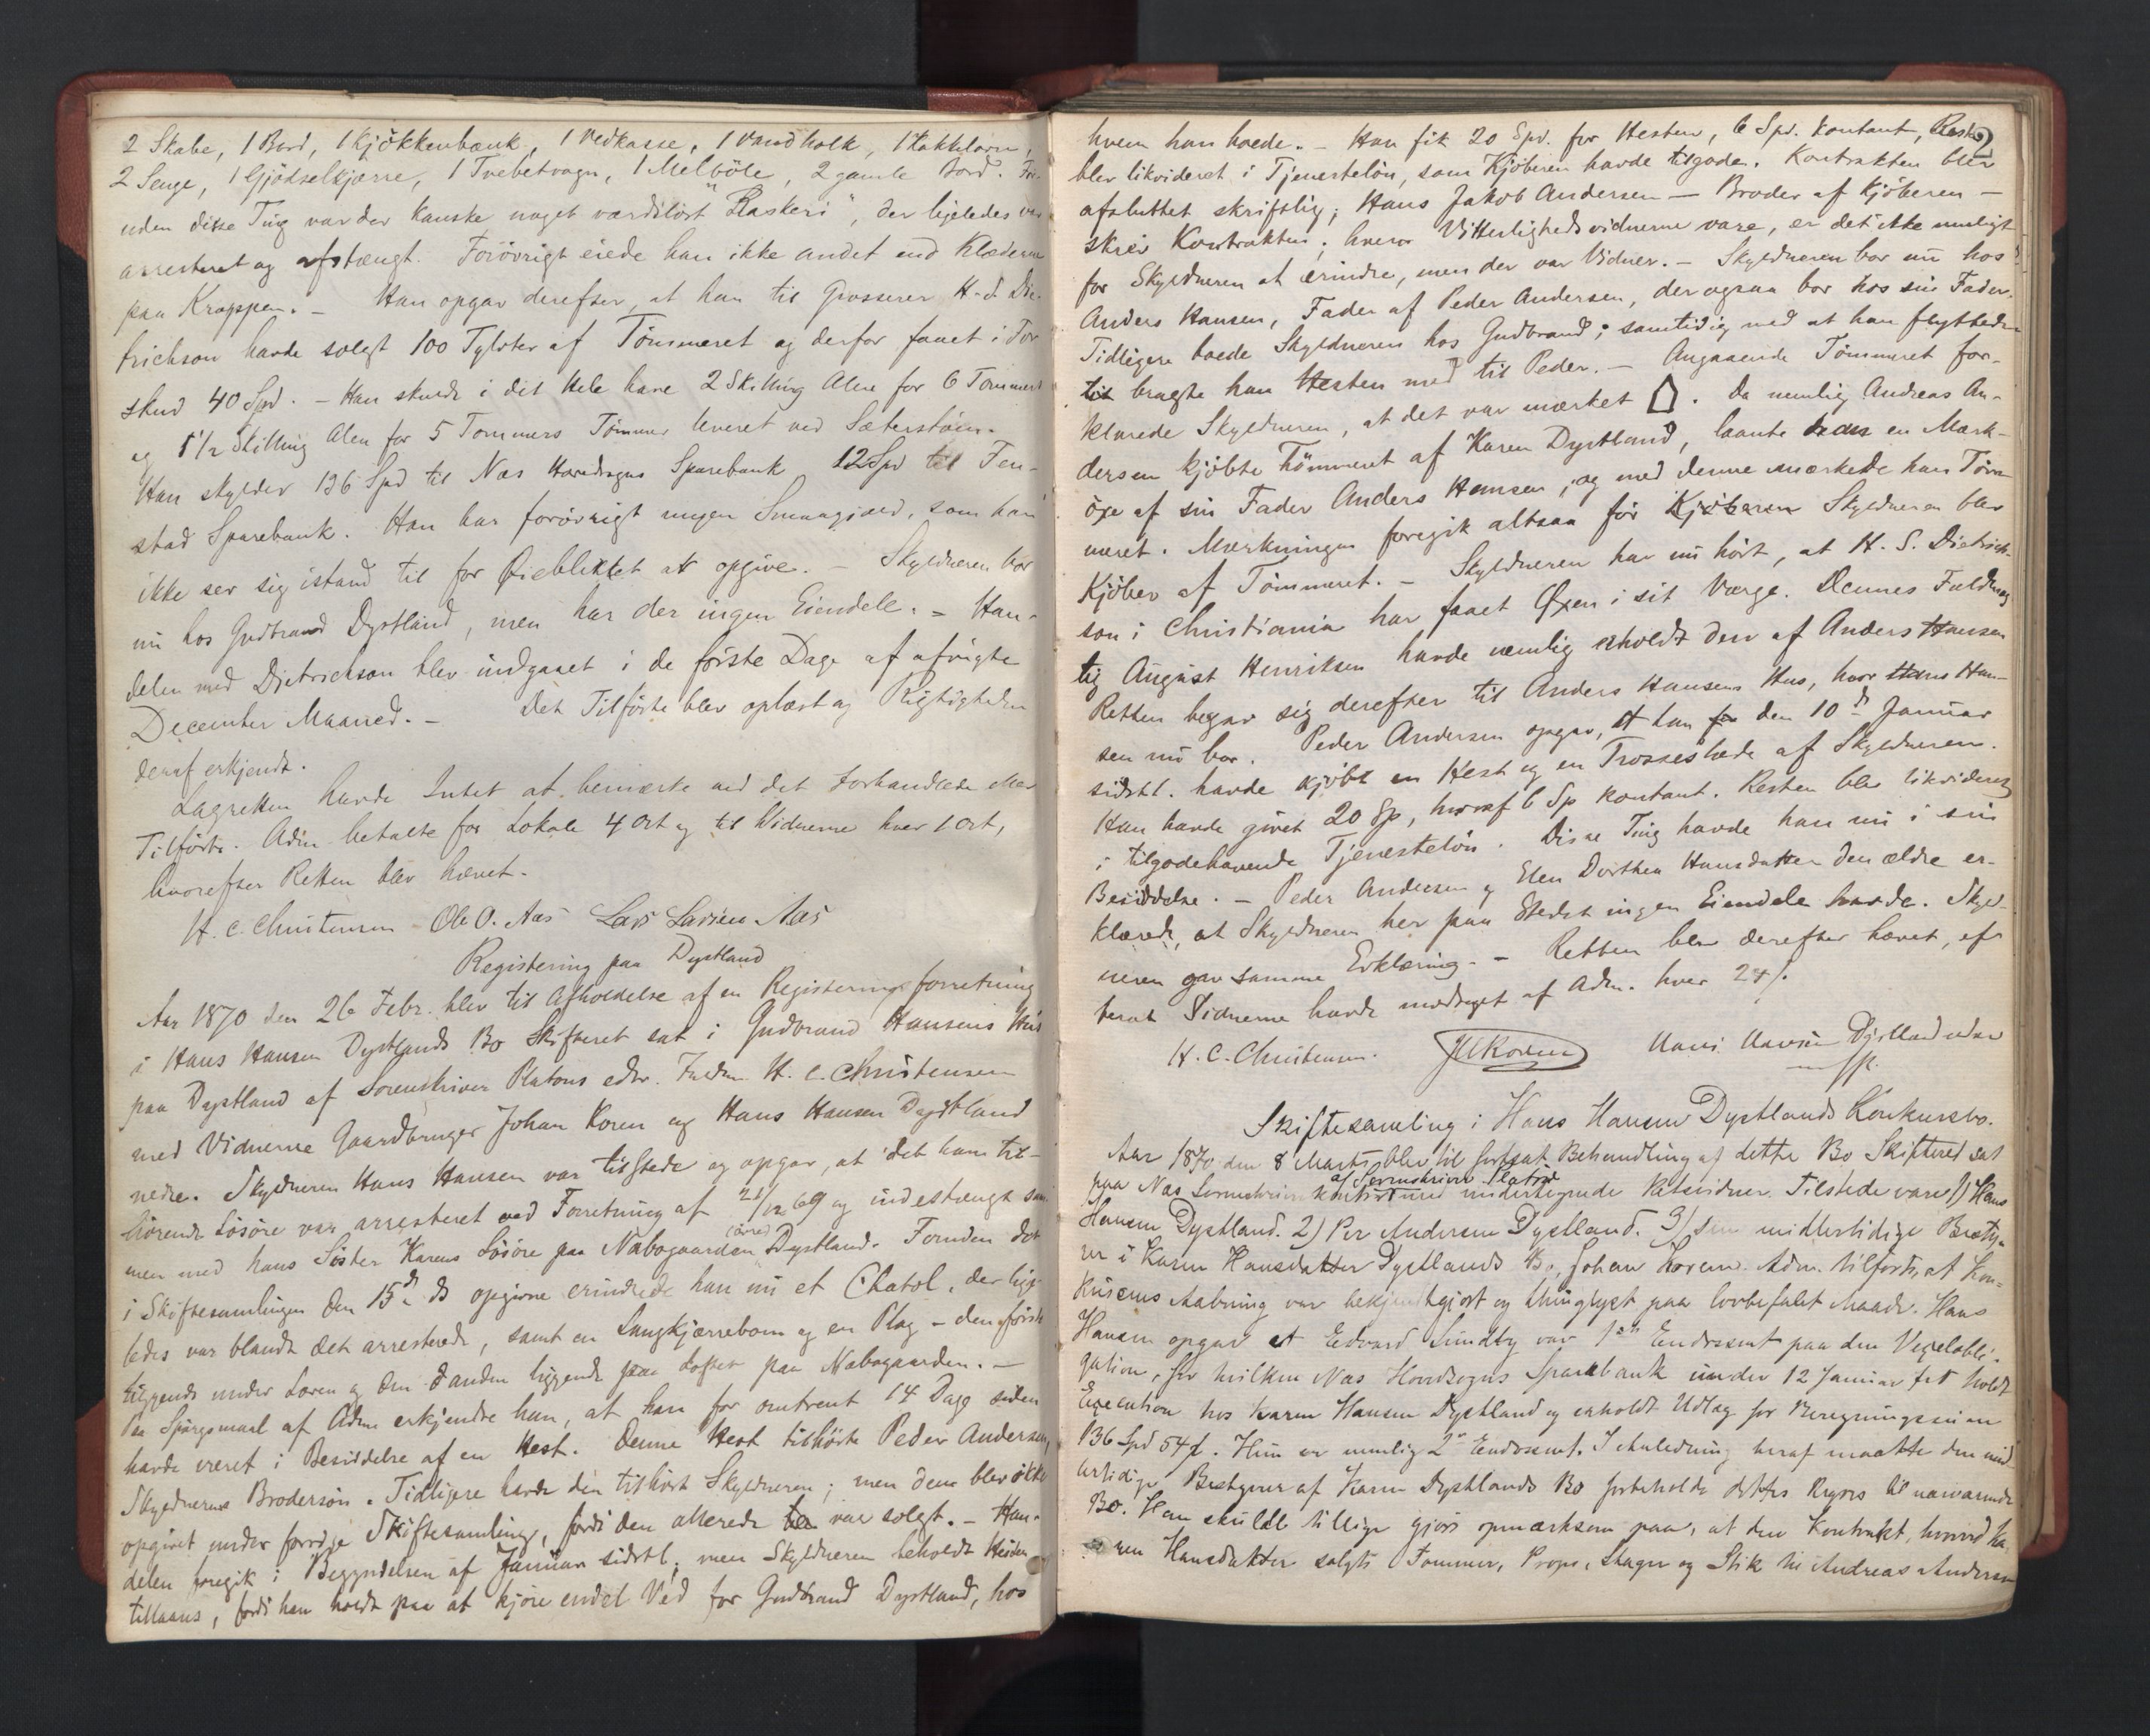 2 Skabe, 1 Bord, 1 Kjökkenbænk, 1 Vedkasse, 1 Vandholk, 1 Kakkelovn,
2 Senge, 1 Gjödselkjærre, 1 Træbetvogn, 1 Melböle, 2 gamle Bord. For-
uden disse Ting var der kanske noget værdilöst "Raskeri", der ligeledes var
arresteret og afstængt. Forövrigt eiede han ikke andet end Klæderne
paa Kroppen. – Han opgav derefter, at han til Grosserer H. S. Die-
trichson havde solgt 100 Tylvter af Tömmeret og derfor faaet i For-
skud 40 Spd. – Han skulde i det Hele have 2 Skilling Alen for 6 Tommers
og 1 1/2 Skilling Alen for 5 Tommers Tömmer leveret ved Sæterstöen.
Han skylder 136 Spd til Næs Hovedsogns Sparebank 12 Spd til Fen-
stad Sparebank. Han har forövrigt nogen Smaagjæld, som han
ikke ser sig istand til for Öieblikket at opgive. – Skyldneren bor
nu hos Gudbrand Dystland, men har der ingen Eiendele. – Han-
delen med Dietrichson blev indgaaet i de förste Dage af afvigte
December Maaned. – Det Tilförte blev oplæst og Rigtigheden
deraf erkjendt.
Lagretten havde Intet at bemærke ved det Forhandlede eller
Tilförte. Adm. betalte for Lokale 4 Ort og til Vidnerne hver 1 Ort,
hvorefter Retten blev hævet.
H. C. Christensen Ole O. Aas Lars Larsen Aas
Registering paa Dystland
Aar 1870 den 26 Febr. blev til Afholdelse af en Registeringsforretning
i Hans Hansen Dystlands Bo Skifteret sat i Gudbrand Hansens Hus
paa Dystland af Sorenskriver Platous edsv. Fuldm. H. C. Christensen
med Vidnerne Gaardbruger Johan Koren og Hans Hansen Dystland
nedre. Skyldneren Hans Hansen var tilstede og opgav, at det ham til-
hörende Lösöre var arresteret ved Forretning af 21/12 69 og indestængt sam-
men med hans Söster Karens Lösöre paa Nabogaarden (övre) Dystland. Foruden det
i Skiftesamlingen den 15de ds opgivne erindrede han nu et Chatol, der lige-
ledes var blandt det arresterede, samt en Langkjærrebom og en Plog – den förste
liggende under Laven og den Danden liggende paa Loftet paa Nabogaarden. –
Paa Spörgsmaal af Adm. erkjendte han, at han for omtrent 14 Dage siden
havde været i Besiddelse af en Hest. Denne Hest tilhörte Peder Andersen,
Skyldnerens Brodersön. Tidligere havde den tilhört Skyldneren; men dem blev ikke
opgivet under forrige Skiftesamling, fordi den allerede var solgt. – Han-
delen foregik i Begyndelsen af Januar sidstl.; men Skyldneren beholdt Hesten
tillaans, fordi han holdt paa at kjöre endel Ved for Gudbrand Dystland, hos
2
hvem han boede. – Han fik 20 Spd. for Hesten, 6 Spd. kontant, Resten
blev likvideret i Tjenestelön, som Kjöberen havde tilgode. Kontrakten blev
afsluttet skriftlig; Hans Jakob Andersen – Broder af Kjöberen –
skrev Kontrakten; hvem Vitterlighedsvidnerne vare, er det ikke muligt
for Skyldneren at erindre, men der var Vidner. – Skyldneren bor nu hos
Anders Hansen, Fader af Peder Andersen, der ogsaa bor hos sin Fader.
Tidligere boede Skyldneren hos Gudbrand; samtidig med at han flyttede
til bragte han Hesten med til Peder. – Angaaende Tömmeret for-
klarede Skyldneren, at det var mærket ⌂. Da nemlig Andreas An-
dersen kjöbte Tömmeret af Karen Dystland, laante han en Mærk-
öxe af sin Fader Anders Hansen, og med denne mærkede han Töm-
meret. Mærkningen foregik altsaa för Kjöberen Skyldneren blev
Kjöber af Tömmeret. – Skyldneren har nu hört, at H. S. Dietrich-
son i Christiania har faaet Öxen i sit Værge. Dennes Fuldmæg-
tig August Henriksen havde nemlig erholdt den af Anders Hansen
Retten begav sig derefter til Anders Hansens Hus, hvor Hans Han-
sen nu bor. Peder Andersen opgav, at han for den 10de Januar
sidstl. havde kjöbt en Hest og en Trosseslæde af Skyldneren.
Han havde givet 20 Sp, hvoraf 6 Sp kontant. Resten blev likvideret
i tilgodehavende Tjenestelön. Disse Ting havde han nu i sin
Besiddelse. – Peder Andersen og Elen Dorthea Hansdatter den ældre er-
klærede, at Skyldneren her paa Stedet ingen Eiendele havde. Skyld-
neren gav samme Erklæring. – Retten blev derefter hævet, ef-
terat Vidnerne havde modtaget af Adm. hver 24 ß.
H. C. Christensen. JKoren Hans Hansen Dystland nedre
Skiftesamling i Hans Hansen Dystlands Konkursbo.
Aar 1870 den 8 Marts blev til fortsat Behandling af dette Bo Skifteret sat
paa Næs Sorenskriverkontor af Sorenskriver Platou med undertegnede Retsvidner. Tilstede vare 1) Hans
Hansen Dystland. 2) Per Andersen Dystland. 3) den midlertidige Besty-
rer i Karen Hansdatter Dystlands Bo, Johan Koren. Adm. tilförte, at Kon-
kursens Aabning var bekjendtgjort og thinglyst paa lovbefalet Maade. Hans
Hansen opgav at Edvard Sundby var 1ste Endossent paa den Vexelobli-
gation, for hvilken Næs Hovedsogns Sparebank under 12 Januar sidst holdt
Execution hos Karen Hansen Dystland og erholdt Udlæg for Beregningssum
136 Spd 54 ß. Hun er nemlig 2den Endossent. I Anledning heraf maatte den mid-
lertidige Bestyrer af Karen Dystlands Bo forbeholde dettes Regres til nærværende
Bo. Han skulde tillige gjöre opmærksom paa, at den Kontrakt, hvorved Ka-
ren Hansdatter solgte Tömmer, Props, Stager og Stik til Andreas Andersen